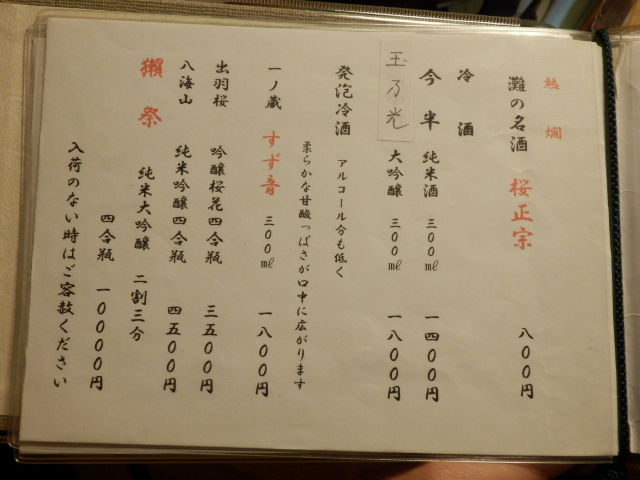 熱燗
灘の名酒 桜正宗 八〇〇円
冷酒
今半 純米酒 三〇〇㎖ 一四〇〇円
玉乃光 大吟醸 三〇〇㎖ 一八〇〇円
発泡冷酒 アルコール分も低く
柔らかな甘酸っぱさが口中に広がります
一ノ蔵 すず音 三〇〇㎖ 一八〇〇円
出羽桜 吟醸桜花四合瓶 三五〇〇円
八海山 純米吟醸四合瓶 四五〇〇円
獺祭 純米大吟醸 二割三分
四合瓶 一〇〇〇〇円
入荷のない時はご容赦ください